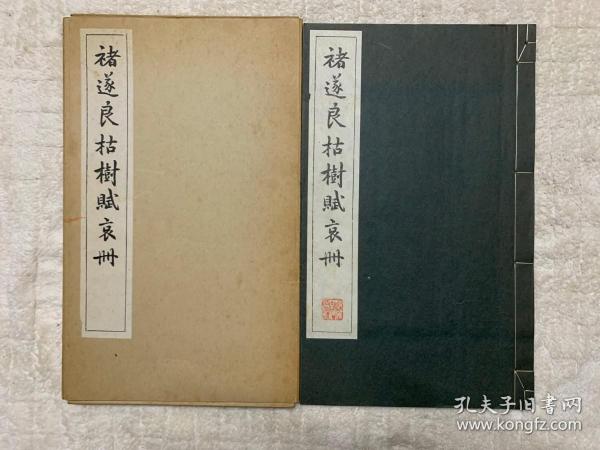 褚遂良枯樹賦哀冊
褚遂良枯樹賦哀冊
孔夫子旧书网
www.kongfz.com